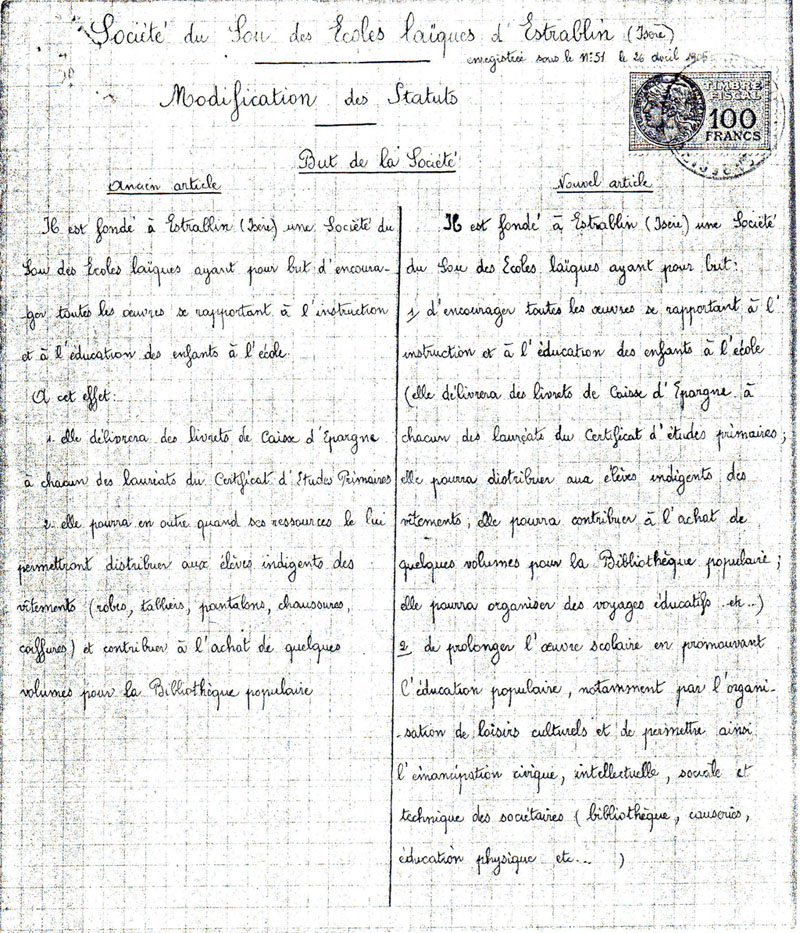 Société du Sou des Ecoles laïques d'Estrablin (Isère)
enregistrée sous le N°51 le 26 avril
TIMBRE
FISCAL
100
FRANCS
Modification des Statuts
But de la Société
Ancien article
Il est fondé à Estrablin (Isère) une Société du
Sou des Ecoles laïques ayant pour but d'encoura-
ger toutes les œuvres se rapportant à l'instruction
et à l'éducation des enfants à l'école.
A cet effet:
1. elle délivrera des livrets de Caisse d'Epargne
à chacun des lauréats du Certificat d'Etudes Primaires
2. elle pourra en outre quand ses ressources le lui
permettront distribuer aux élèves indigents des
vêtements (robes, tabliers, pantalons, chaussures,
coiffures) et contribuer à l'achat de quelques
volumes pour la Bibliothèque populaire
Nouvel article
Il est fondé à Estrablin (Isère) une Société
du Sou des Ecoles laïques ayant pour but:
1 d'encourager toutes les œuvres se rapportant à l'
instruction et à l'éducation des enfants à l'école
(elle délivrera des livrets de Caisse d'Epargne à
chacun des lauréats du Certificat d'études primaires;
elle pourra distribuer aux élèves indigents des
vêtements; elle pourra contribuer à l'achat de
quelques volumes pour la Bibliothèque populaire;
elle pourra organiser des voyages éducatifs etc...)
2 de prolonger l'œuvre scolaire en promouvant
l'éducation populaire, notamment par l'organi-
-sation de loisirs culturels et de permettre ainsi
l'émancipation civique, intellectuelle, sociale et
technique des sociétaires (bibliothèque, causeries,
éducation physique etc... )